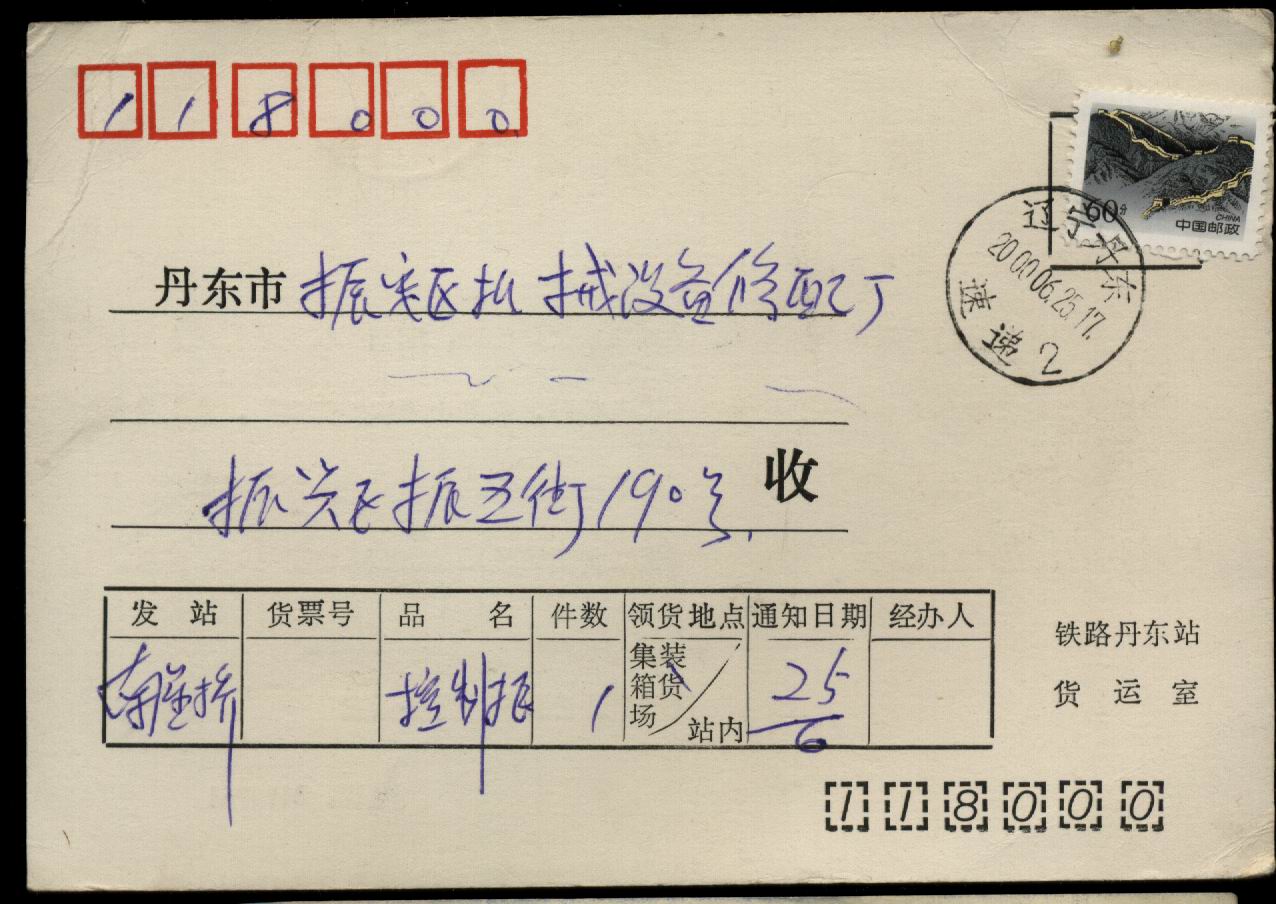 118000
60分
CHINA
中国邮政
辽宁丹东
2000.06.25.17.
速递 2
丹东市 振安区机械设备修配厂
振兴区振五街190号 收
发站 货票号 品名 件数 领货地点 通知日期 经办人
控制 1 集装箱货场 站内 25/6
铁路丹东站
货运室
118000